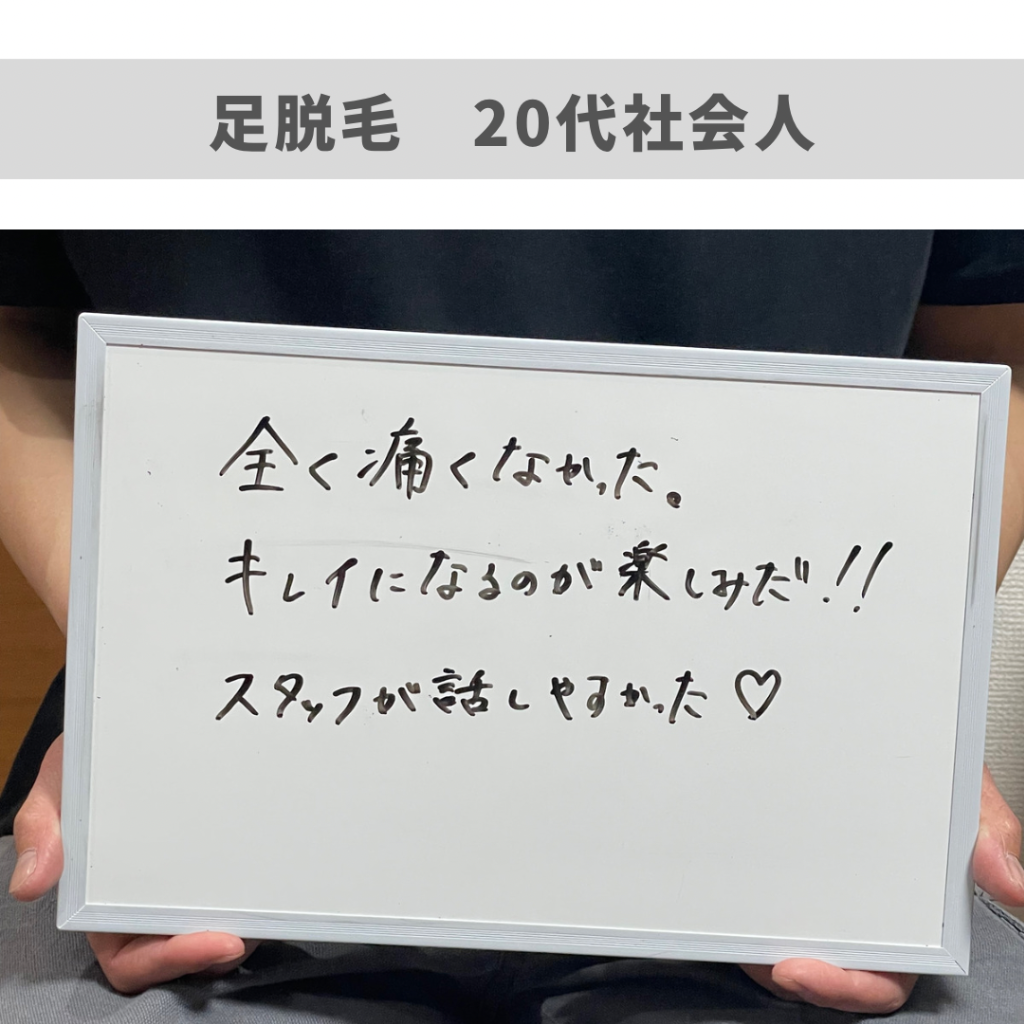 足脱毛　20代社会人
全く痛くなかった。
キレイになるのが楽しみだ!!
スタッフが話しやすかった♡